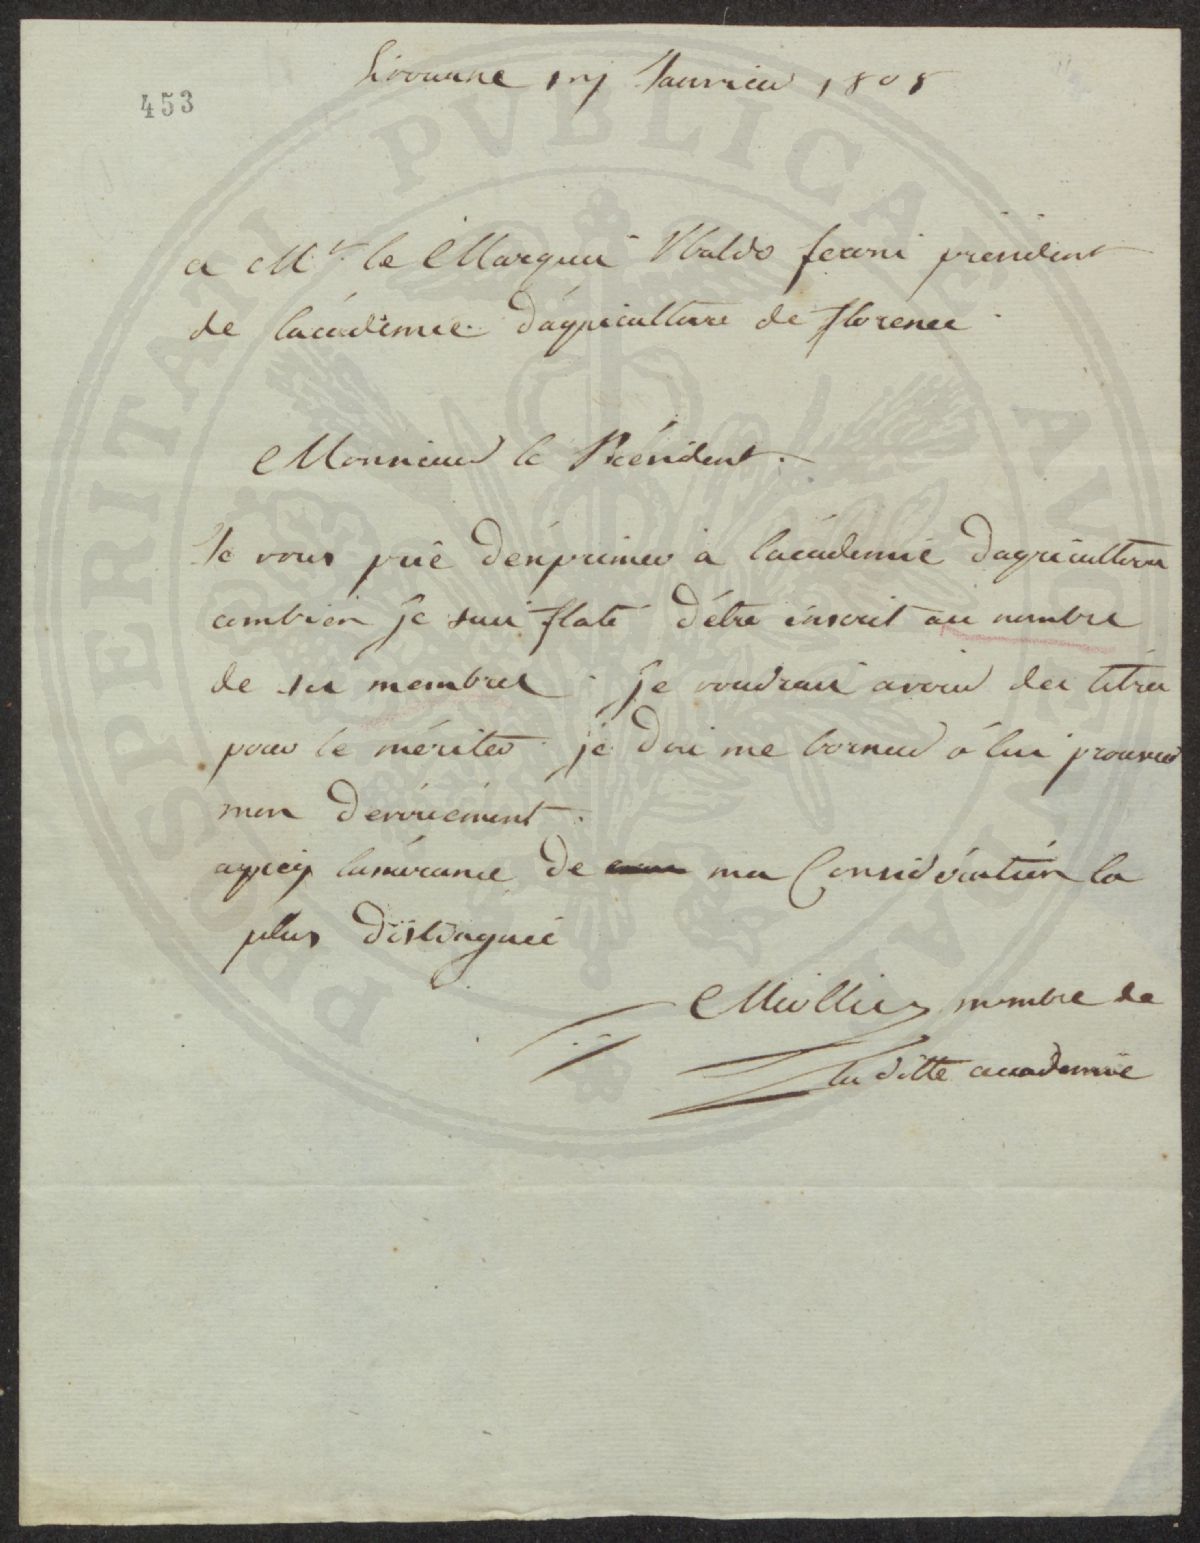 Livourne Janvier 1808
453
a Mr. le Marquis Ubaldo feroni président
de l'académie d'agriculture de florence
Monsieur le Président.
Je vous prie d'éxprimer à l'académie d'agriculture
combien je suis flaté d'être inscrit au nombre
de ses membres. je voudrais avoir des titres
pour le mériter. je dois me borner à lui prouver
mon dévouement.
agréez l'assurance de ma Considération la
plus distinguée
Miollis membre de
la ditte academie
PROSPERITATI PVBLICAE AVGENDAE